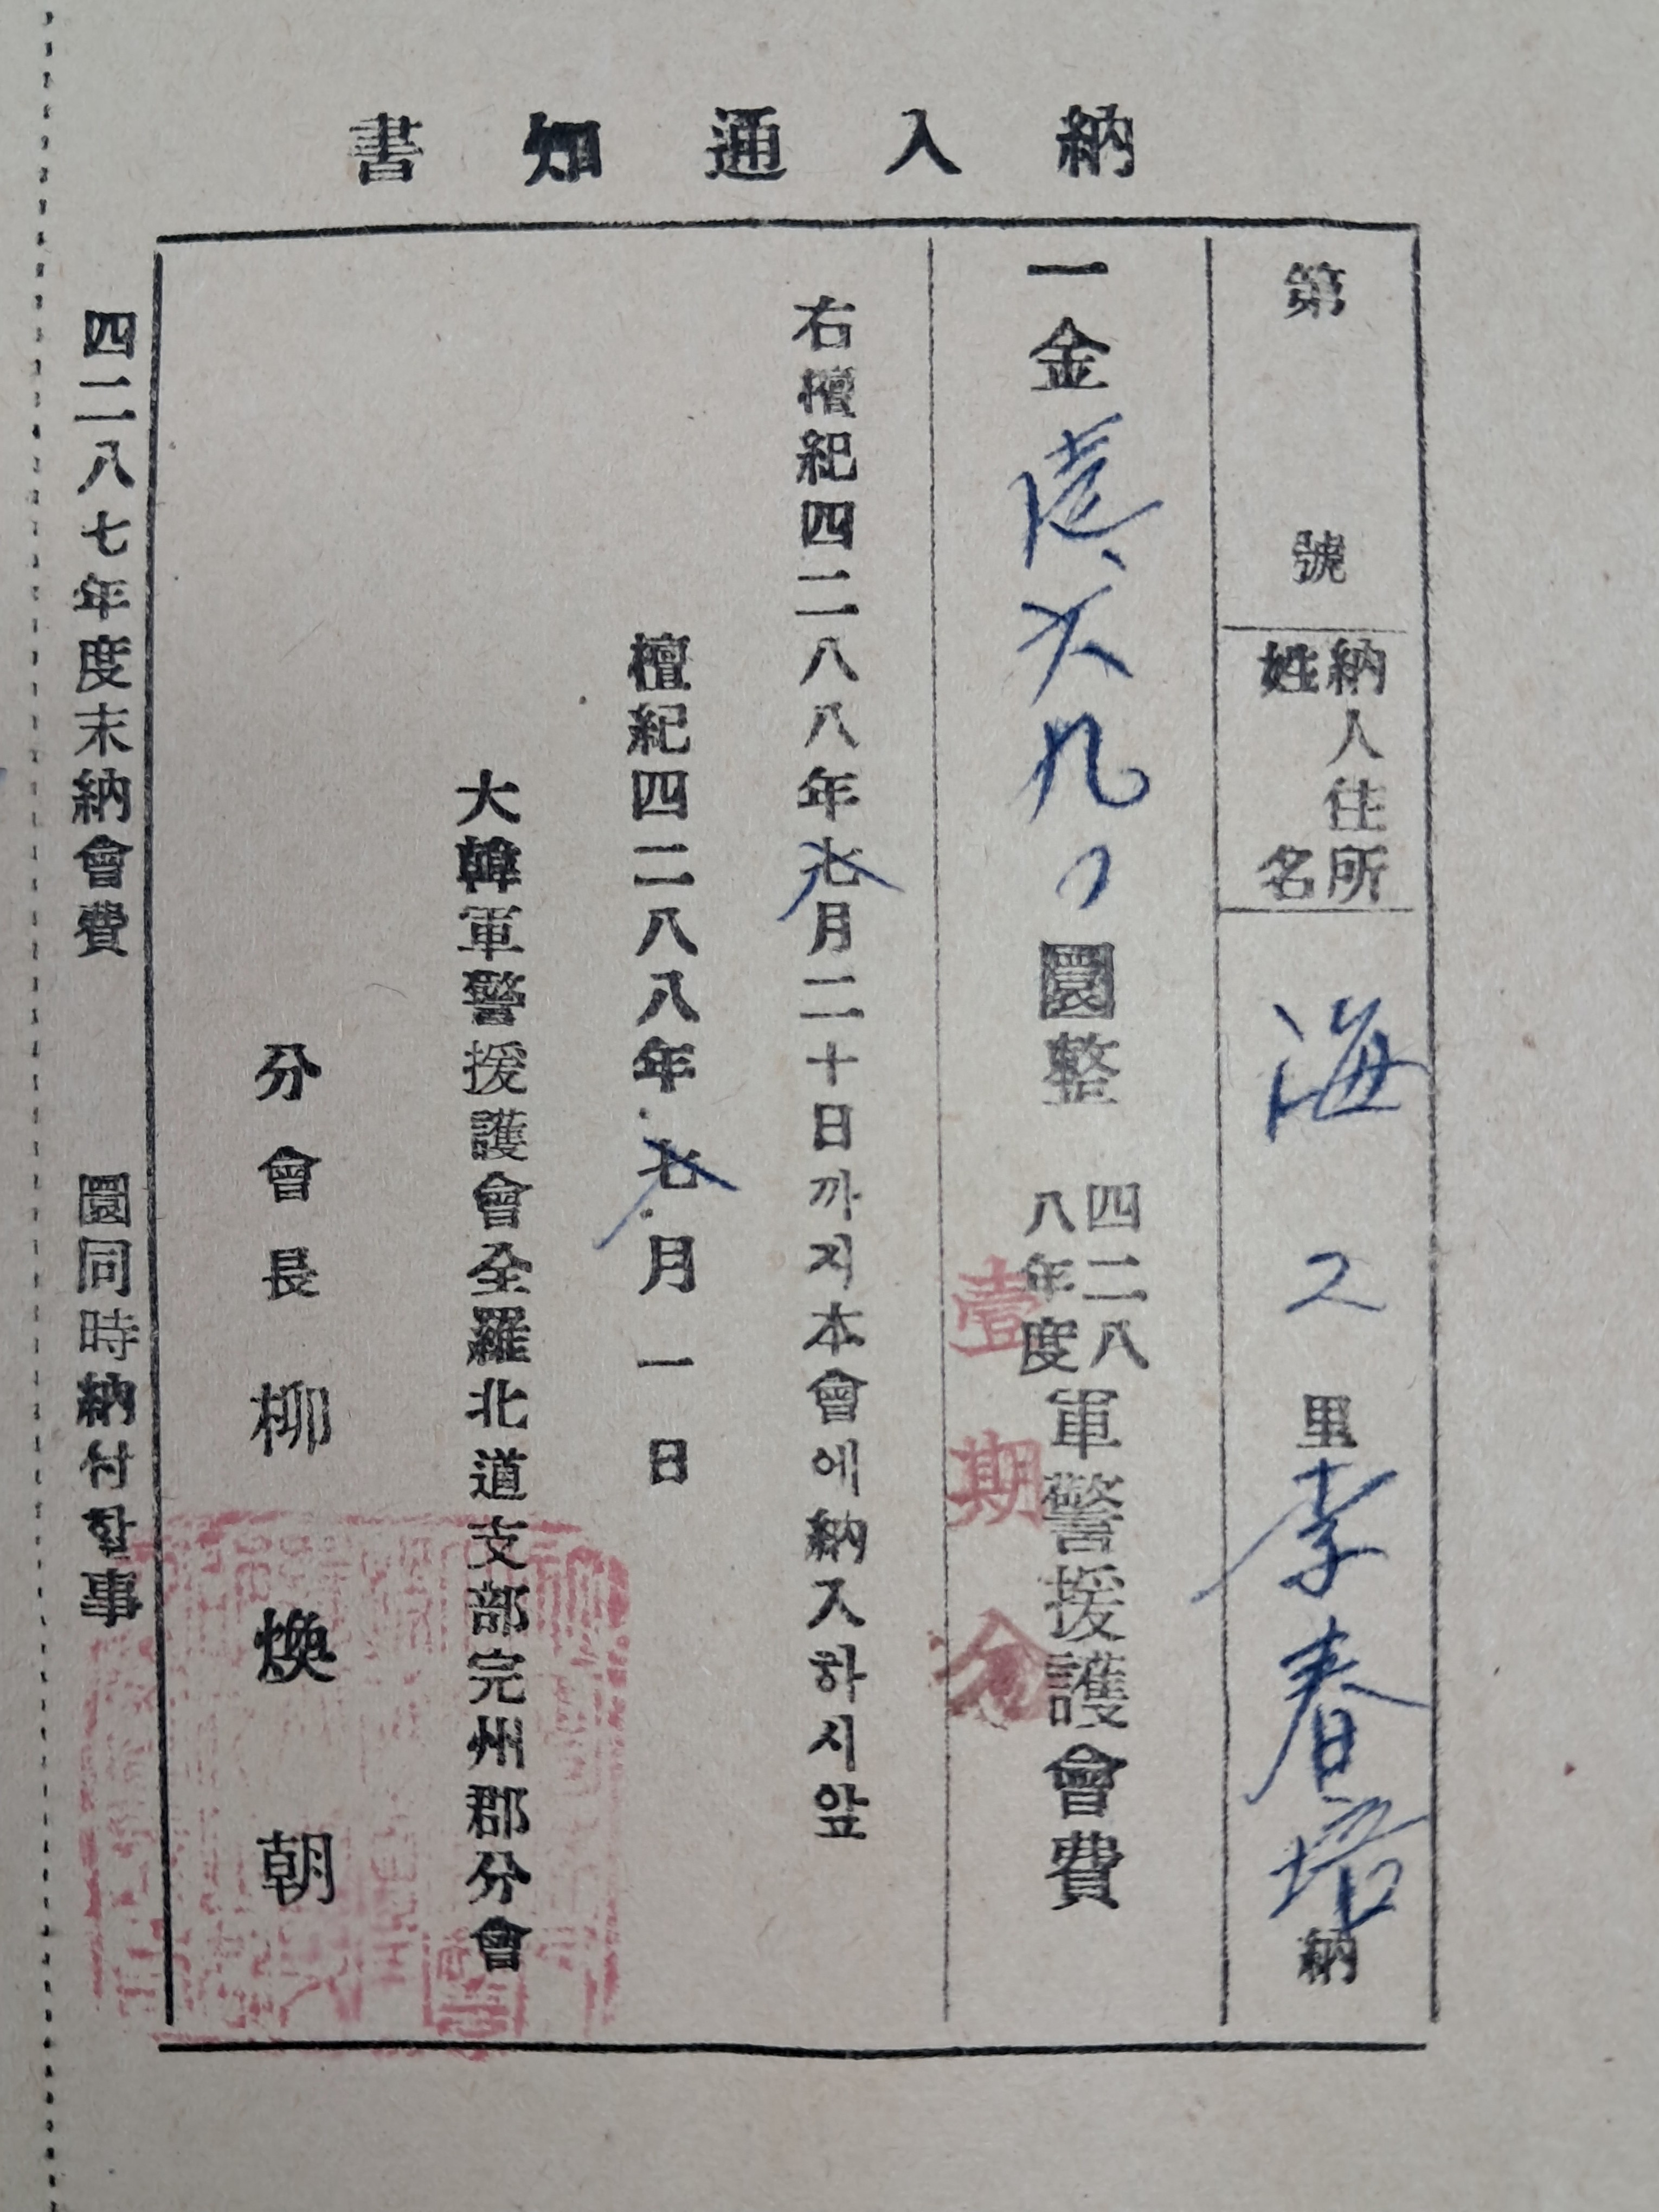 納入通知書
第 號
納人住所
姓名
海 2 里 李春培 納
一金 壹、六九0 圜整 四二八八年度 軍警援護會費
壹期分
右檀紀四二八八年七月二十日까지本會에納入하시앞
檀紀四二八八年七月一日
大韓軍警援護會全羅北道支部完州郡分會
分會長 柳煥朝
四二八七年度末納會費 圜同時納付할事